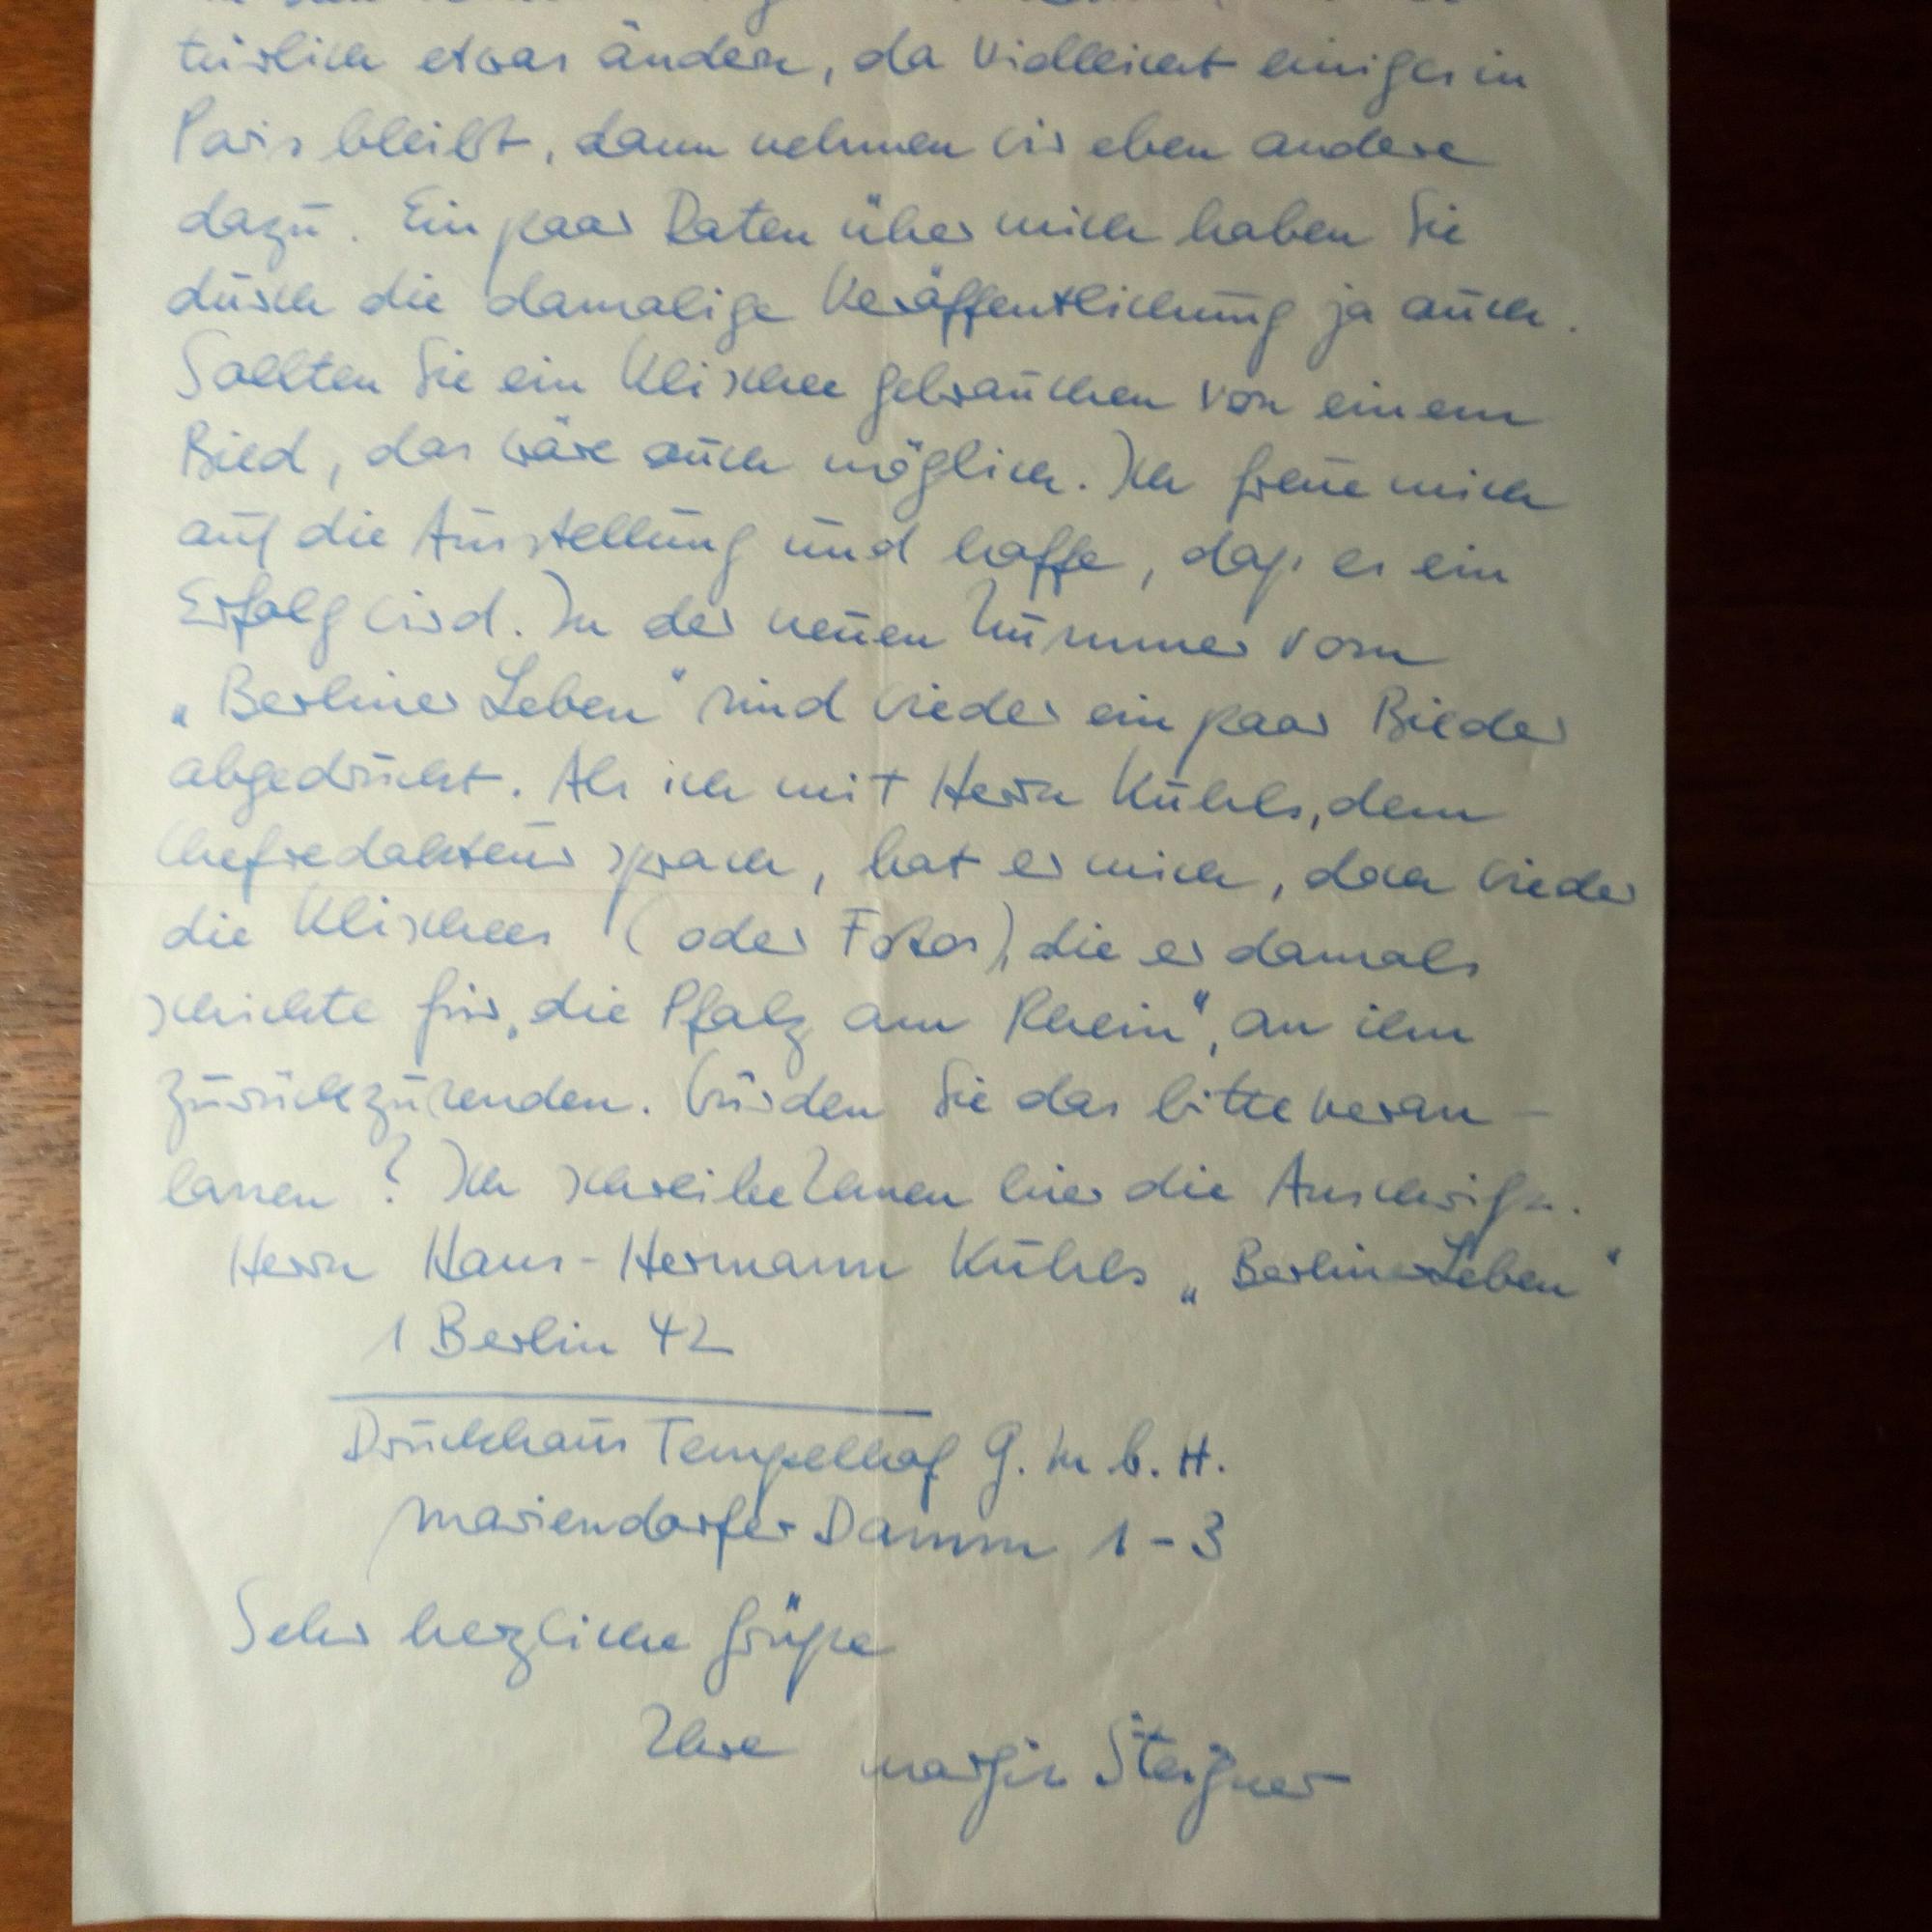 türlich etwas ändern, da vielleicht einiges in
Paris bleibt, dann nehmen wir eben andere
dazu. Ein paar Daten über mich haben Sie
durch die damalige Veröffentlichung ja auch.
Sollten Sie ein Klischee gebrauchen von einem
Bild, das wäre auch möglich. Ich freue mich
auf die Ausstellung und hoffe, daß es ein
Erfolg wird. In der neuen Nummer vom
„Berliner Leben“ sind wieder ein paar Bilder
abgedruckt. Als ich mit Herrn Kühls, dem
Chefredakteur sprach, bat er mich, doch wieder
die Klischees (oder Fotos), die er damals
schickte für „die Pfalz am Rhein“, an ihn
zurückzusenden. Würden Sie das bitte veran-
lassen? Ich schreibe Ihnen hier die Anschrift.
Herrn Hans-Hermann Kühls „Berliner Leben“
1 Berlin 42
Druckhaus Tempelhof G.m.b.H.
Mariendorfer Damm 1-3
Sehr herzliche Grüße
Ihre Margit Steigner